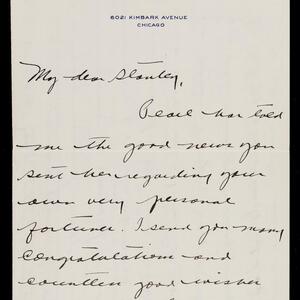 6021 KIMBARK AVENUE
CHICAGO
My dear Stanley,
Pearl has told
me the good news you
sent her regarding your
own very personal
fortune. I send you many
congratulations and
countless good wishes